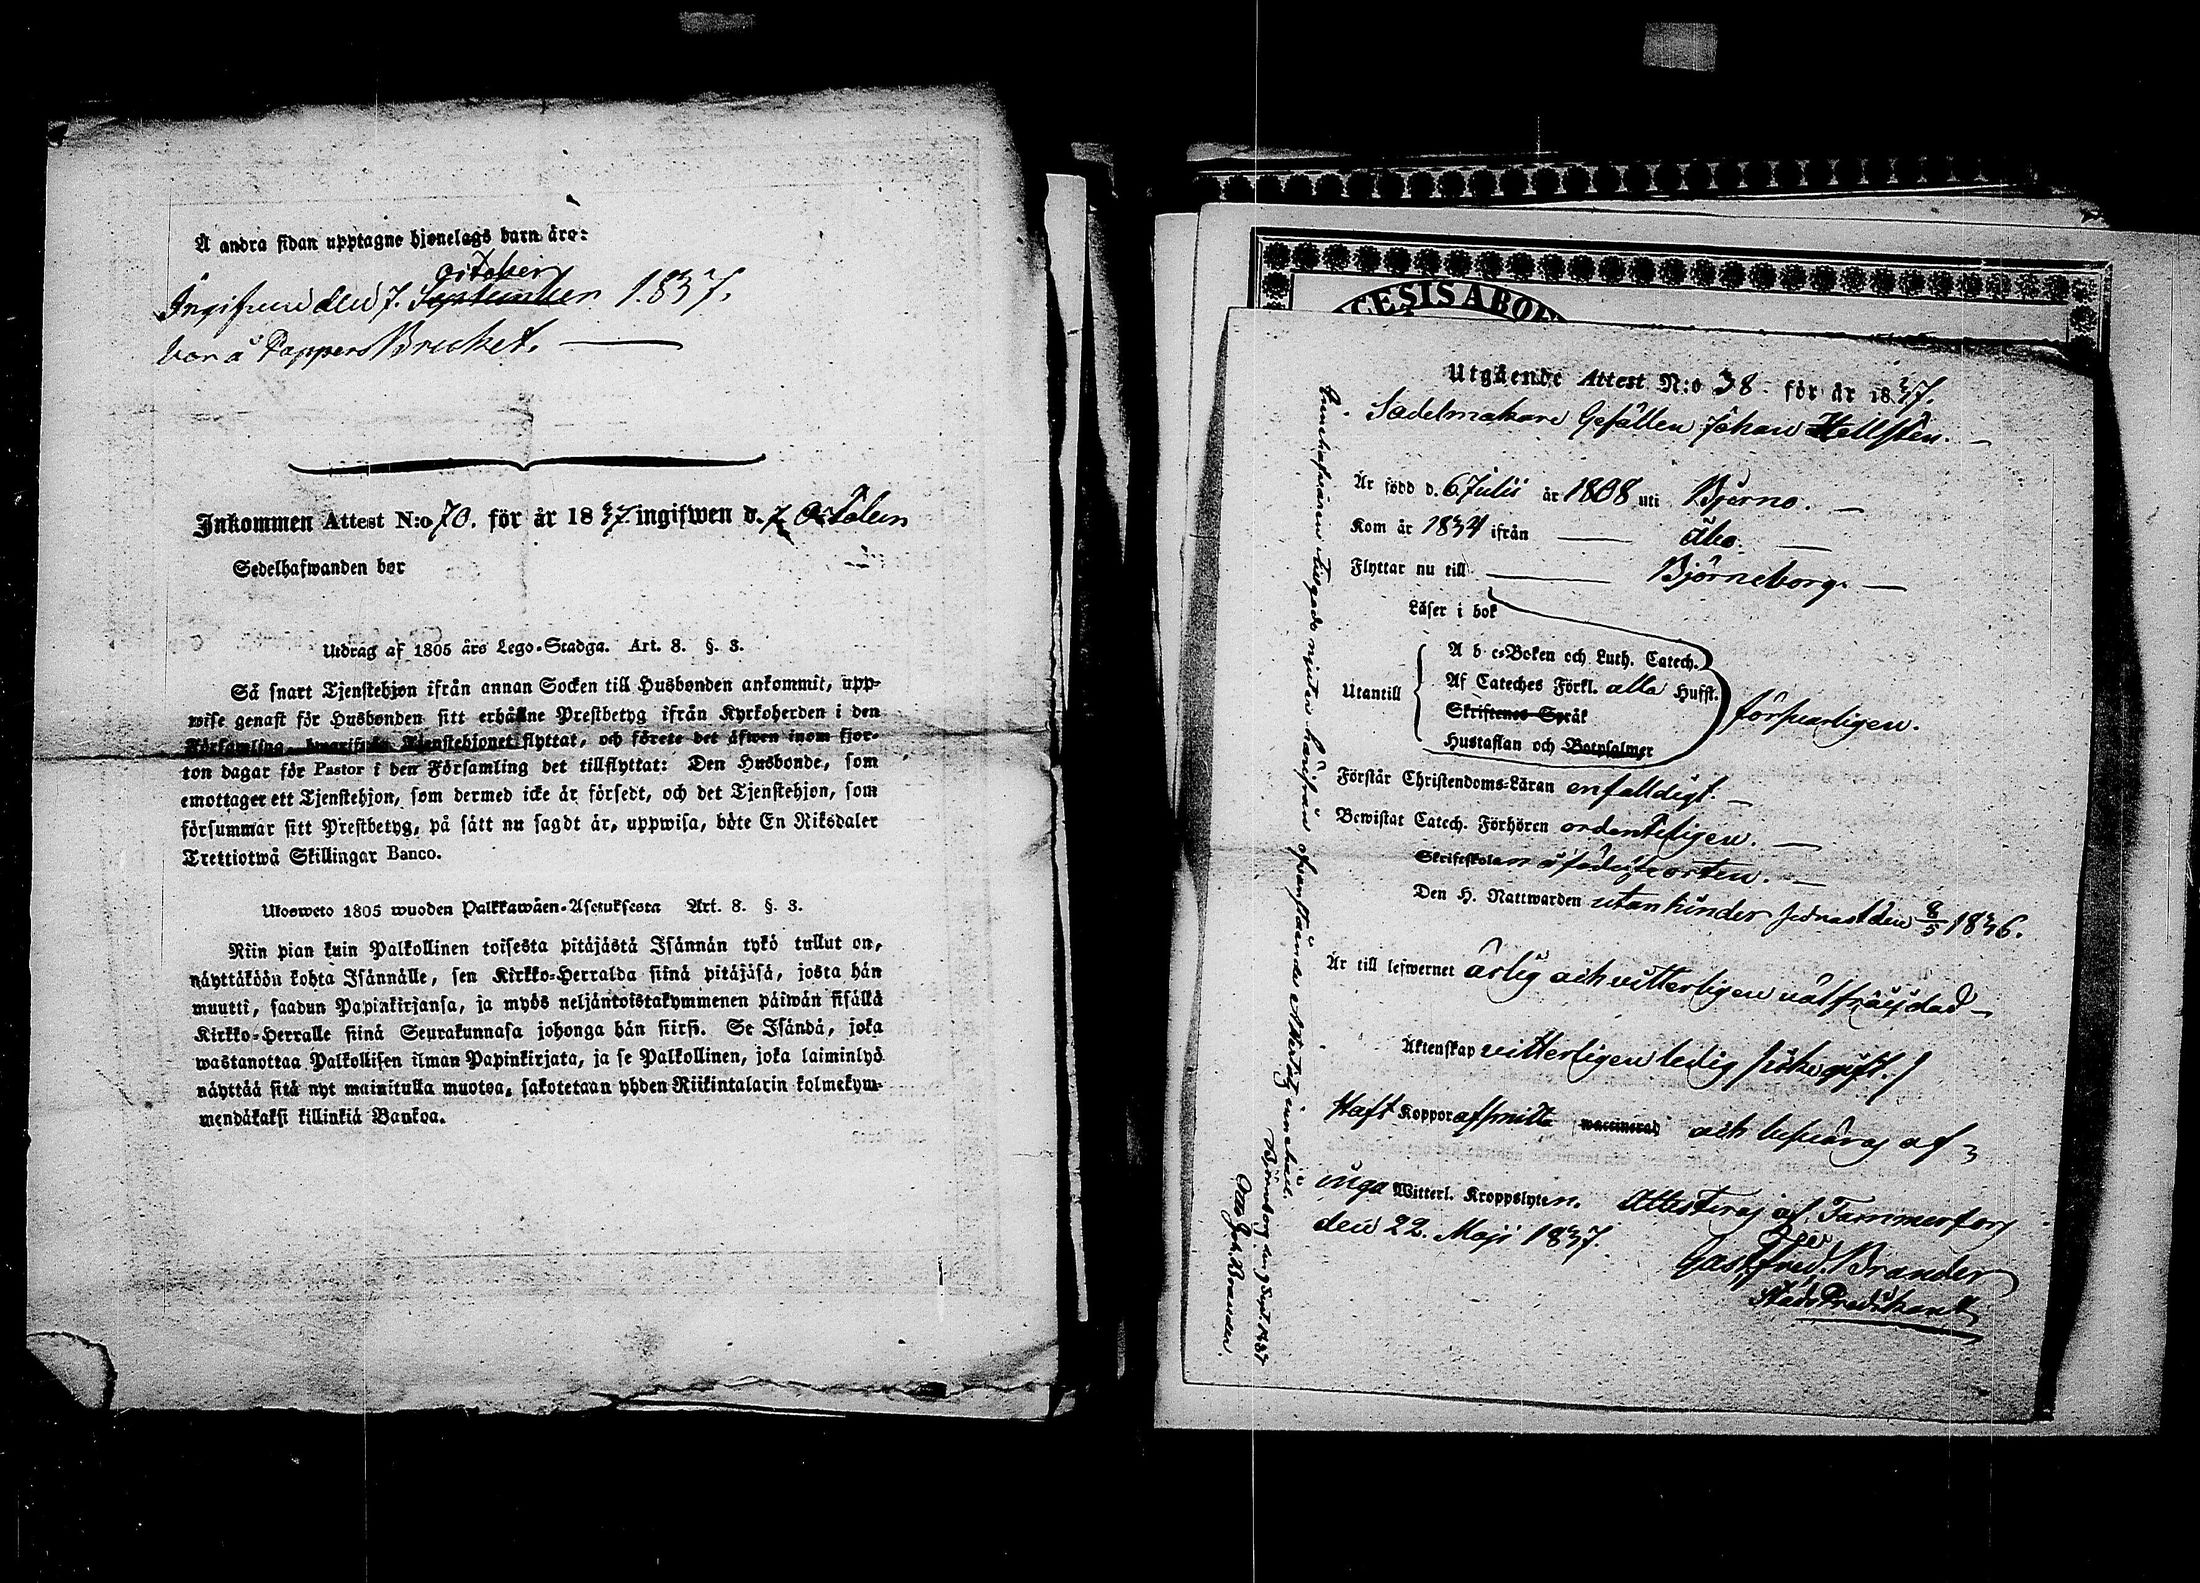 Å andra sidan upptagne hjonelags barn äro:
october
Ingifven den 7. September 1837.
bor å Pappers Bruket.
Inkommen Attest N:o 70. för år 1837. ingifwen d. 7 October
Sedelhafwanden bor
Utdrag af 1805 års Lego-Stadga. Art. 8. §. 3.
Så snart Tjenstehjon ifrån annan Socken till Husbonden ankommit, upp-
wise genast för Husbonden sitt erhållne Prestbetyg ifrån Kyrkoherden i den
Församling, hwarifrån Tjenstehjonet flyttat, och förete det äfwen inom fjor-
ton dagar för Pastor i den Församling det tillflyttat: Den Husbonde, som
emottager ett Tjenstehjon, som dermed icke är försedt, och det Tjenstehjon, som
försummar sitt Prestbetyg, på sätt nu sagdt är, uppwisa, böte En Riksdaler
Trettiotwå Skillingar Banco.
Ulosweto 1805 wuoden Palkkawäen-Asetuksesta Art. 8. §. 3.
Niin pian kuin Palkollinen toisesta pitäjästä Isännän tykö tullut on,
näyttäköön kohta Isännälle, sen Kirkko-Herralda siinä pitäjäsä, josta hän
muutti, saadun Papinkirjansa, ja myös neljäntoistakymmenen päiwän sisällä
Kirkko-Herralle siinä Seurakunnasa johonga hän siirsi. Se Isändä, joka
wastanottaa Palkollisen ilman Papinkirjata, ja se Palkollinen, joka laiminlyö
näyttää sitä nyt mainitulla muotoa, sakotetaan yhden Riikintalarin kolmekym-
mendäkaksi killinkiä Bankoa.
CESIS ABO
Utgående Attest N:o 38 för år 1837.
Sadelmakare Gesällen Johan Hellsten.
Är född d. 6 Julii år 1808 uti Bjerno.
Kom år 1834 ifrån Åbo.
Flyttar nu till Björneborg.
Läser i bok
A b c-Boken och Luth. Catech.
Utantill Af Cateches Förkl. alla Hufst.
Skriftenes Språk
försvarligen.
Hustaflan och Botpsalmer
Förstår Christendoms-Läran enfalldigt.
Bewistat Catech. Förhören ordenteligen.
Skriftskolan å födelseorten.
Den H. Nattwarden utan hinder sednast den 8/5 1836.
Är till lefwernet ärlig och vitterligen välfräjdad
Äktenskap vitterligen ledig (icke gift.)
Haft Koppor afsmitta waccinerad och besväras af
inga Witterl. Kroppslyten. Attesteras af Tammerfors
den 22. Maji 1837.
Gust. Fred. Brander
Stads Predikant
Innehafvaren tillgodo njuten härifrån ofvanstående Attestats innehåll.
Björneborg den 9 Sept. 1837
Otto Joh. Brander.